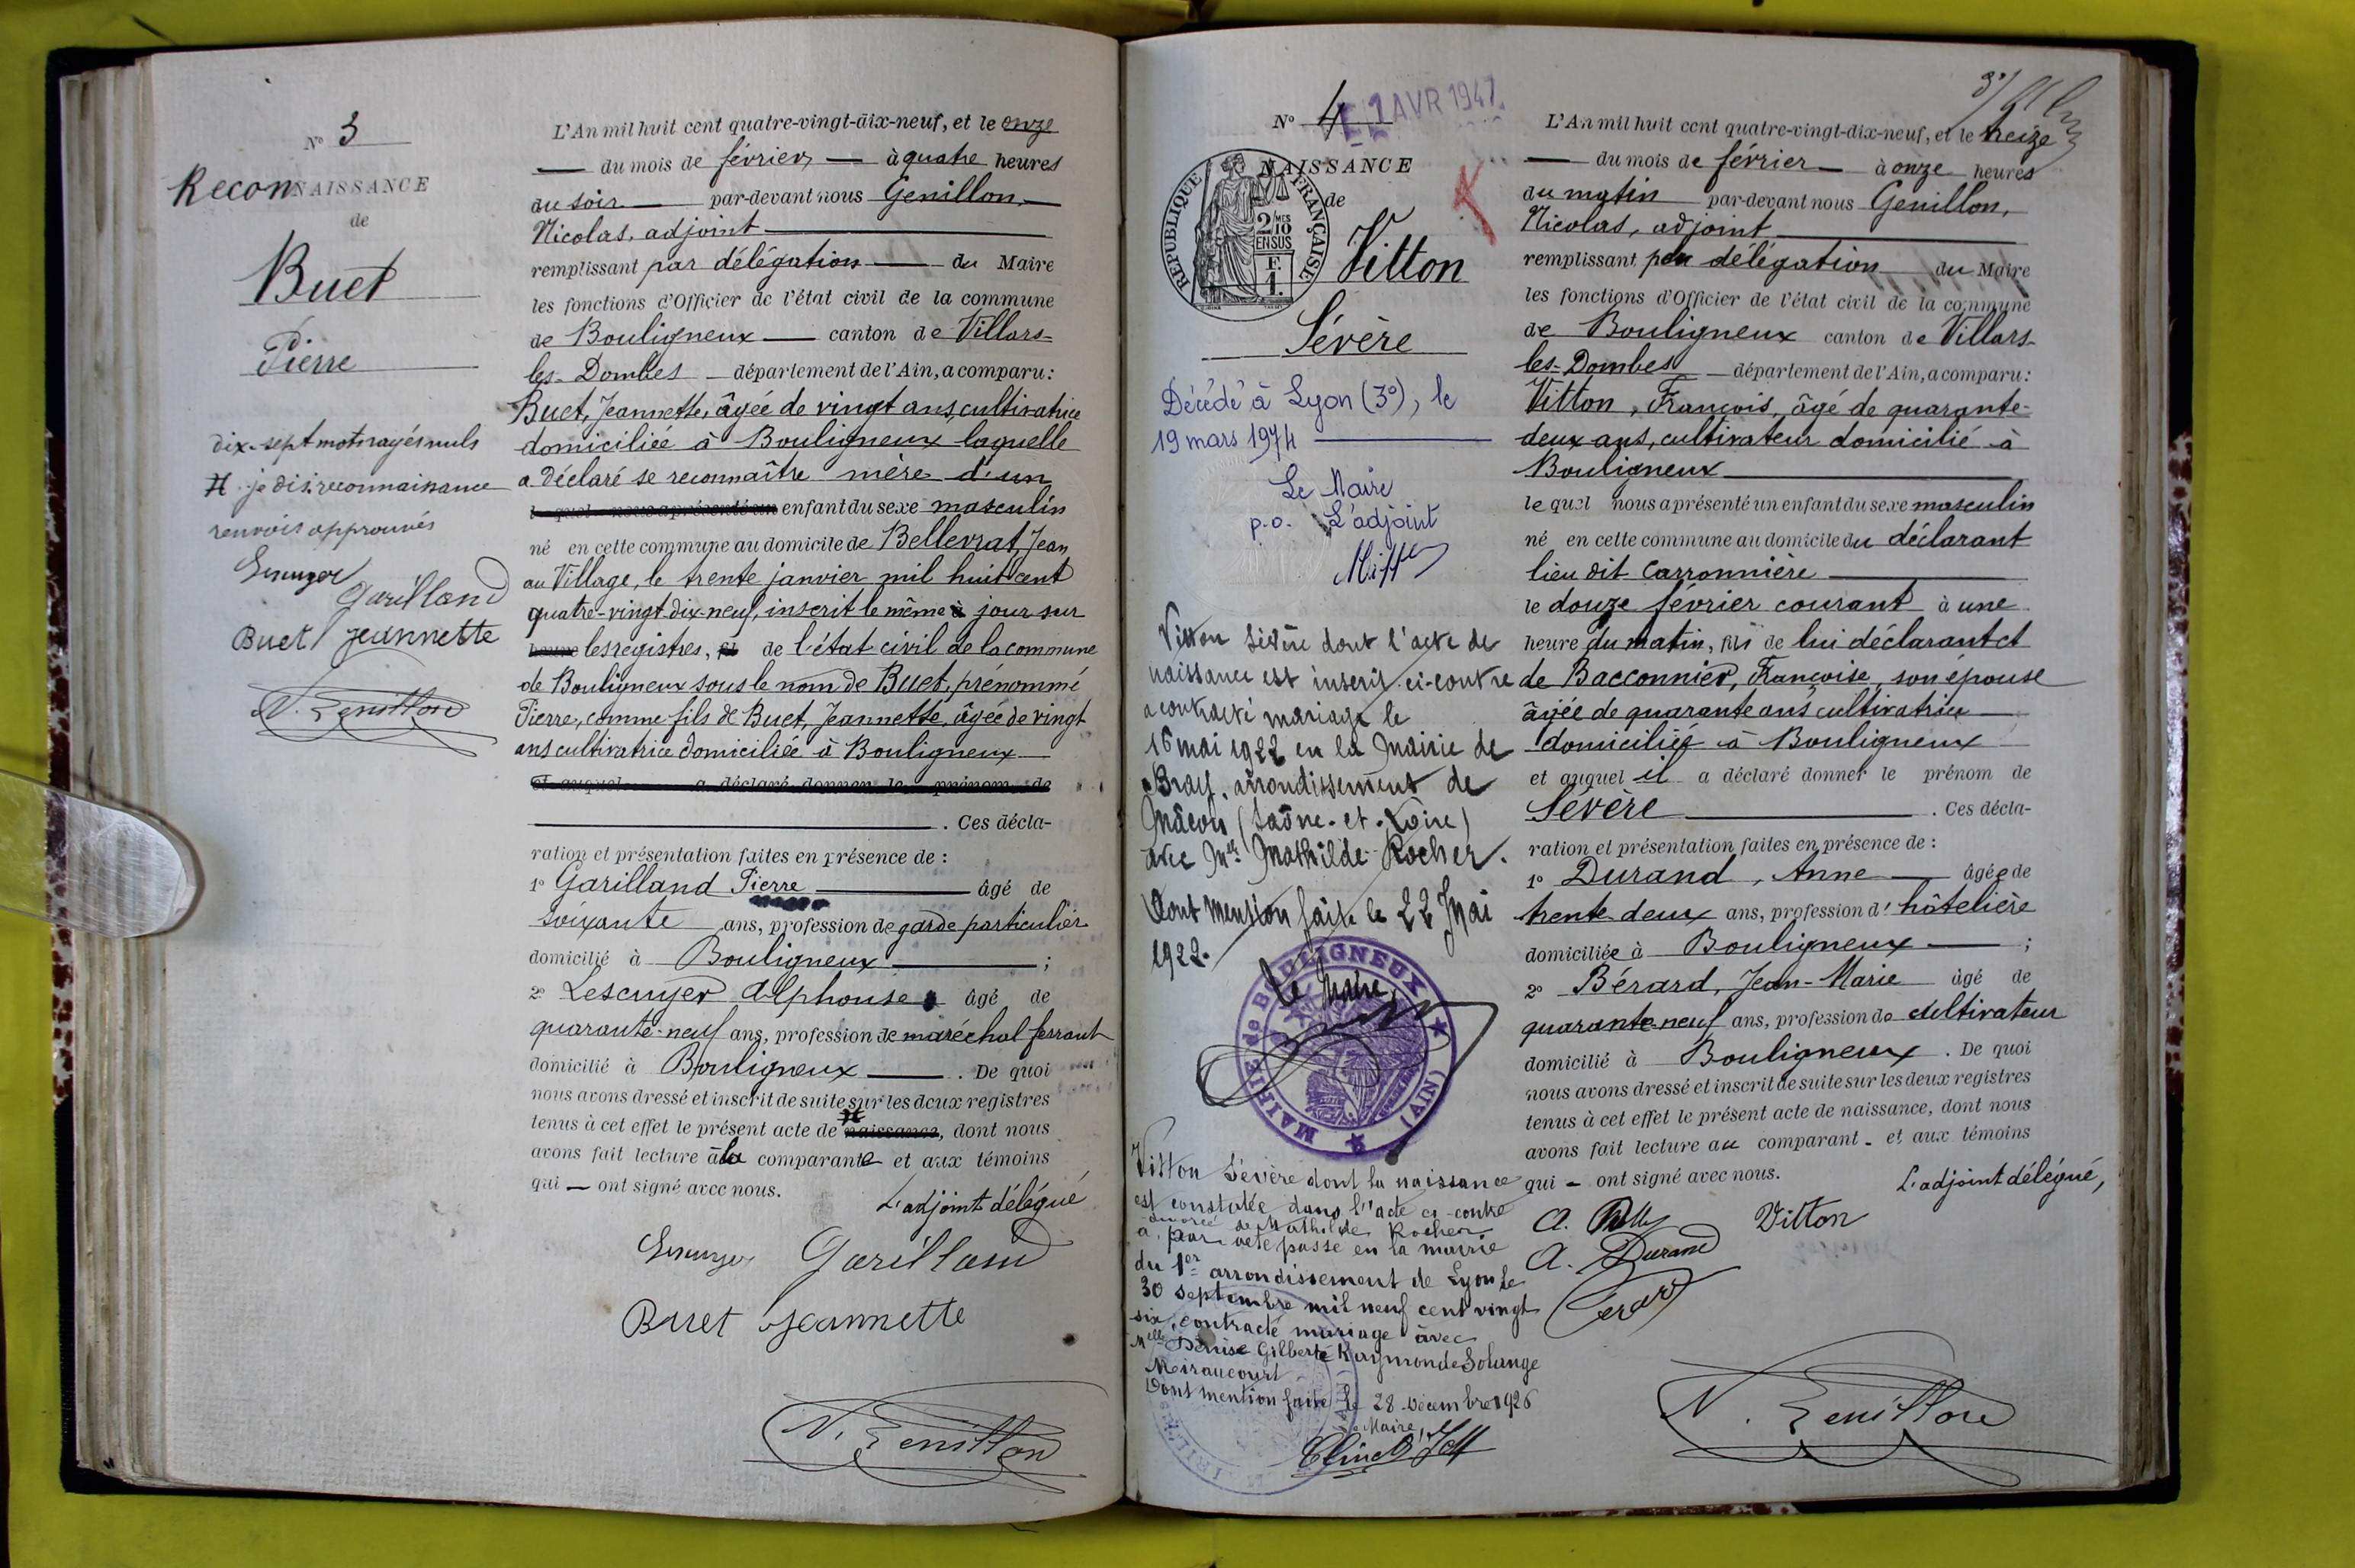 N° 3
ReconNAISSANCE
de
Buet
Pierre
dix-sept mots rayés nuls
je dis: reconnaissance
renvois approuvés
Garilland
Buet Jeannette
N. Genillon
L'An mil huit cent quatre-vingt-dix-neuf, et le onze
du mois de février à quatre heures
du soir par-devant nous Genillon,
Nicolas, adjoint
remplissant par délégation du Maire
les fonctions d'Officier de l'état civil de la commune
de Bouligneux canton de Villars-
les-Dombes département de l'Ain, a comparu:
Buet, Jeannette, âgée de vingt ans, cultivatrice
domiciliée à Bouligneux, laquelle
a déclaré se reconnaître mère d'un
l quel nous a présenté un enfant du sexe masculin
né en cette commune au domicile de Bellevrat, Jean
au Village, le trente janvier mil huit cent
quatre-vingt-dix-neuf, inscrit le même jour sur
heure les registres, de l'état civil de la commune
de Bouligneux sous le nom de Buet, prénommé
Pierre, comme fils de Buet, Jeannette, âgée de vingt
ans cultivatrice domiciliée à Bouligneux
et auquel a déclaré donner le prénom de
. Ces décla-
ration et présentation faites en présence de :
1° Garilland Pierre âgé de
soixante ans, profession de garde particulier
domicilié à Bouligneux ;
2° Lescuyer Alphonse âgé de
quarante-neuf ans, profession de maréchal ferrant
domicilié à Bouligneux . De quoi
nous avons dressé et inscrit de suite sur les deux registres
tenus à cet effet le présent acte de naissance, dont nous
avons fait lecture à la comparante et aux témoins
qui — ont signé avec nous.
L'adjoint délégué
Garilland
Buet Jeannette
N. Genillon
N° 4
1 AVR 1947
NAISSANCE
de
REPUBLIQUE FRANÇAISE
2/10 MES
EN SUS
F.
1.
Vitton
Sévère
Décédé à Lyon (3e), le
19 mars 1974
Le Maire
p.o. L'adjoint
Vitton Sévère dont l'acte de
naissance est inscrit ci-contre
a contracté mariage le
16 mai 1922 en la Mairie de
Bray, arrondissement de
Mâcon (Saône-et-Loire)
avec Mlle Mathilde Rocher.
Dont mention faite le 22 Mai
1922.
Le Maire,
MAIRIE de BOULIGNEUX (AIN)
Vitton Sévère dont la naissance
est constatée dans l'acte ci-contre
divorcé de Mathilde Rocher
a, par acte passé en la mairie
du 1er arrondissement de Lyon le
30 septembre mil neuf cent vingt
six, contracté mariage avec
Melle Denise Gilberte Raymonde Solange
Miraucourt
Dont mention faite le 28 Décembre 1926
Le Maire,
L'An mil huit cent quatre-vingt-dix-neuf, et le treize
du mois de février à onze heures
du matin par-devant nous Genillon,
Nicolas, adjoint
remplissant par délégation du Maire
les fonctions d'Officier de l'état civil de la commune
de Bouligneux canton de Villars-
les-Dombes département de l'Ain, a comparu:
Vitton, François, âgé de quarante-
deux ans, cultivateur domicilié à
Bouligneux
le quel nous a présenté un enfant du sexe masculin
né en cette commune au domicile du déclarant
lieu dit Carronnière
le douze février courant à une
heure du matin, fils de lui déclarant et
de Bacconnier, Françoise, son épouse
âgée de quarante ans cultivatrice
domiciliée à Bouligneux
et auquel il a déclaré donner le prénom de
Sévère . Ces décla-
ration et présentation faites en présence de :
1° Durand, Anne âgée de
trente deux ans, profession d'hôtelière
domiciliée à Bouligneux ;
2° Bérard, Jean-Marie âgé de
quarante-neuf ans, profession de cultivateur
domicilié à Bouligneux . De quoi
nous avons dressé et inscrit de suite sur les deux registres
tenus à cet effet le présent acte de naissance, dont nous
avons fait lecture au comparant - et aux témoins
qui - ont signé avec nous.
L'adjoint délégué,
Vitton
A. Durand
N. Genillon